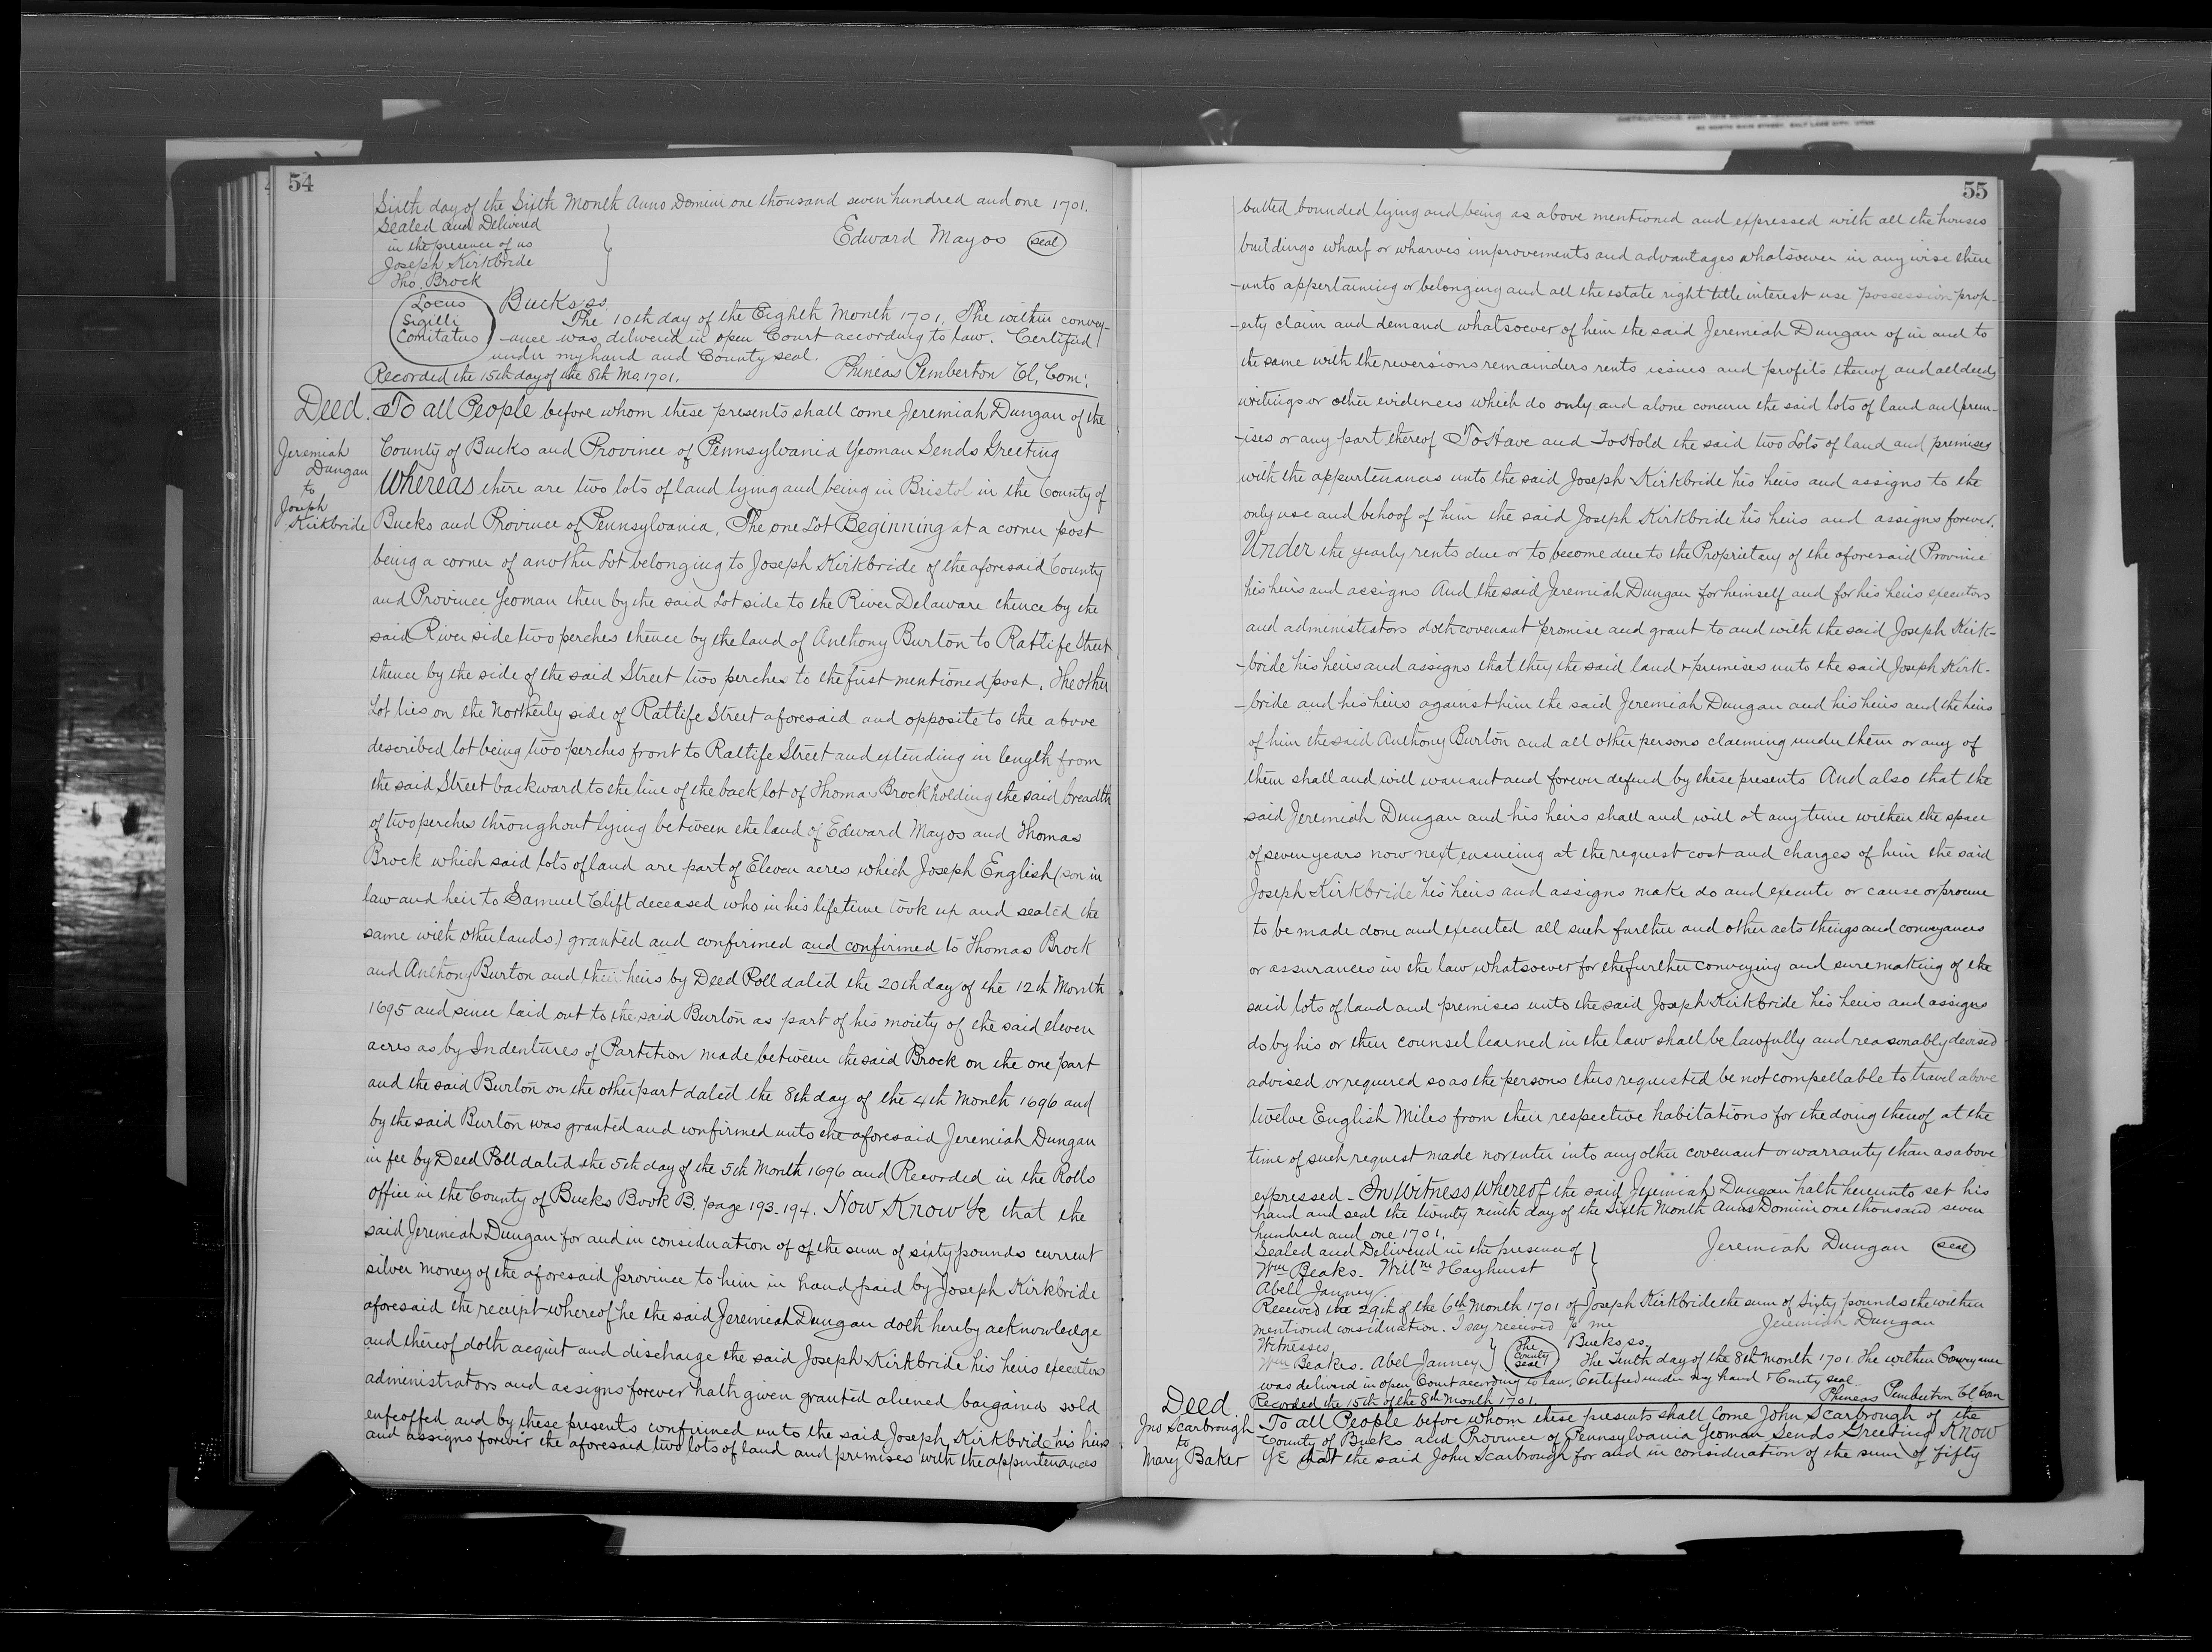 54
Sixth day of the Sixth Month Anno Domini one thousand seven hundred and one 1701.
Sealed and Delivered
in the presence of us
Joseph Kirkbride
Tho. Brock
Edward Mayos (seal)
Locus
Sigilli
Comitatus
Bucks ss.
The 10th day of the Eighth Month 1701, The within convey-
-ance was delivered in open Court according to law. Certified
under my hand and County seal.
Phineas Pemberton Cl, Com:
Recorded the 15th day of the 8th Mo, 1701.
Deed.
Jeremiah
Dungan
to
Joseph
Kirkbride
To all People before whom these presents shall come Jeremiah Dungan of the
County of Bucks and Province of Pennsylvania Yeoman Sends Greeting
Whereas there are two lots of land lying and being in Bristol in the County of
Bucks and Province of Pennsylvania, The one Lot Beginning at a corner post
being a corner of another Lot belonging to Joseph Kirkbride of the aforesaid County
and Province Yeoman then by the said Lot side to the River Delaware thence by the
said River side two perches thence by the land of Anthony Burton to Ratlife Street
thence by the side of the said Street two perches to the first mentioned post. The other
Lot lies on the Northerly side of Ratlife Street aforesaid and opposite to the above
described lot being two perches front to Ratlife Street and extending in length from
the said Street backward to the line of the back lot of Thomas Brock holding the said breadth
of two perches throughout lying between the land of Edward Mayos and Thomas
Brock which said lots of land are part of Eleven acres which Joseph English (son in
law and heir to Samuel Clift deceased who in his lifetime took up and seated the
same with other lands) granted and confirmed and confirmed to Thomas Brock
and Anthony Burton and their heirs by Deed Poll dated the 20th day of the 12th Month
1695 and since laid out to the said Burton as part of his moiety of the said eleven
acres as by Indentures of Partition made between the said Brock on the one part
and the said Burton on the other part dated the 8th day of the 4th Month 1696 and
by the said Burton was granted and confirmed unto the aforesaid Jeremiah Dungan
in fee by Deed Poll dated the 5th day of the 5th Month 1696 and Recorded in the Rolls
office in the County of Bucks Book B. page 193-194. Now Know Ye that the
said Jeremiah Dungan for and in consideration of of the sum of sixty pounds current
silver money of the aforesaid province to him in hand paid by Joseph Kirkbride
aforesaid the receipt whereof he the said Jeremiah Dungan doth hereby acknowledge
and thereof doth acquit and discharge the said Joseph Kirkbride his heirs executors
administrators and assigns forever hath given granted aliened bargained sold
enfeoffed and by these presents confirmed unto the said Joseph Kirkbride his heirs
and assigns forever the aforesaid two lots of land and premises with the appurtenances
55
butted bounded lying and being as above mentioned and expressed with all the houses
buildings wharf or wharves improvements and advantages whatsoever in any wise there
-unto appertaining or belonging and all the estate right title interest use possession prop-
-erty claim and demand whatsoever of him the said Jeremiah Dungan of in and to
the same with the reversions remainders rents issues and profits thereof and all deeds
writings or other evidences which do only and alone concern the said lots of land and prem-
-ises or any part thereof To Have and To Hold the said two Lots of land and premises
with the appurtenances unto the said Joseph Kirkbride his heirs and assigns to the
only use and behoof of him the said Joseph Kirkbride his heirs and assigns forever.
Under the yearly rents due or to become due to the Proprietary of the aforesaid Province
his heirs and assigns And the said Jeremiah Dungan for himself and for his heirs executors
and administrators doth covenant promise and grant to and with the said Joseph Kirk-
-bride his heirs and assigns that they the said land & premises unto the said Joseph Kirk-
-bride and his heirs against him the said Jeremiah Dungan and his heirs and the heirs
of him the said Anthony Burton and all other persons claiming under them or any of
them shall and will warrant and forever defend by these presents And also that the
said Jeremiah Dungan and his heirs shall and will at any time within the space
of seven years now next ensueing at the request cost and charges of him the said
Joseph Kirkbride his heirs and assigns make do and execute or cause or procure
to be made done and executed all such further and other acts things and conveyances
or assurances in the law whatsoever for the further conveying and sure making of the
said lots of land and premises unto the said Joseph Kirkbride his heirs and assigns
do by his or their counsel learned in the law shall be lawfully and reasonably devised
advised or required so as the persons thus requested be not compellable to travel above
twelve English Miles from their respective habitations for the doing thereof at the
time of such request made nor enter into any other covenant or warranty than as above
expressed - In Witness Whereof the said Jeremiah Dungan hath hereunto set his
hand and seal the twenty ninth day of the Sixth Month Anno Domini one thousand seven
hundred and one 1701.
Sealed and Delivered in the presence of
Wm Beaks. Willm Hayhurst
Abell Janney
Jeremiah Dungan (seal)
Received the 29th of the 6th Month 1701 of Joseph Kirkbride the sum of Sixty pounds the within
mentioned consideration. I say received p me
Jeremiah Dungan
Witnesses
Wm Beakes. Abel Janney
The
County
Seal
Bucks ss,
The Tenth day of the 8th Month 1701 The within Conveyance
was delivered in open Court according to law, Certified under my hand & County seal
Phineas Pemberton Cl Com
Recorded the 15th of the 8th Month 1701.
Deed
Jno Scarbrough
to
Mary Baker
To all People before whom these presents shall Come John Scarbrough of the
County of Bucks and Province of Pennsylvania Yeoman Sends Greeting Know
Ye that the said John Scarbrough for and in consideration of the sum of fifty